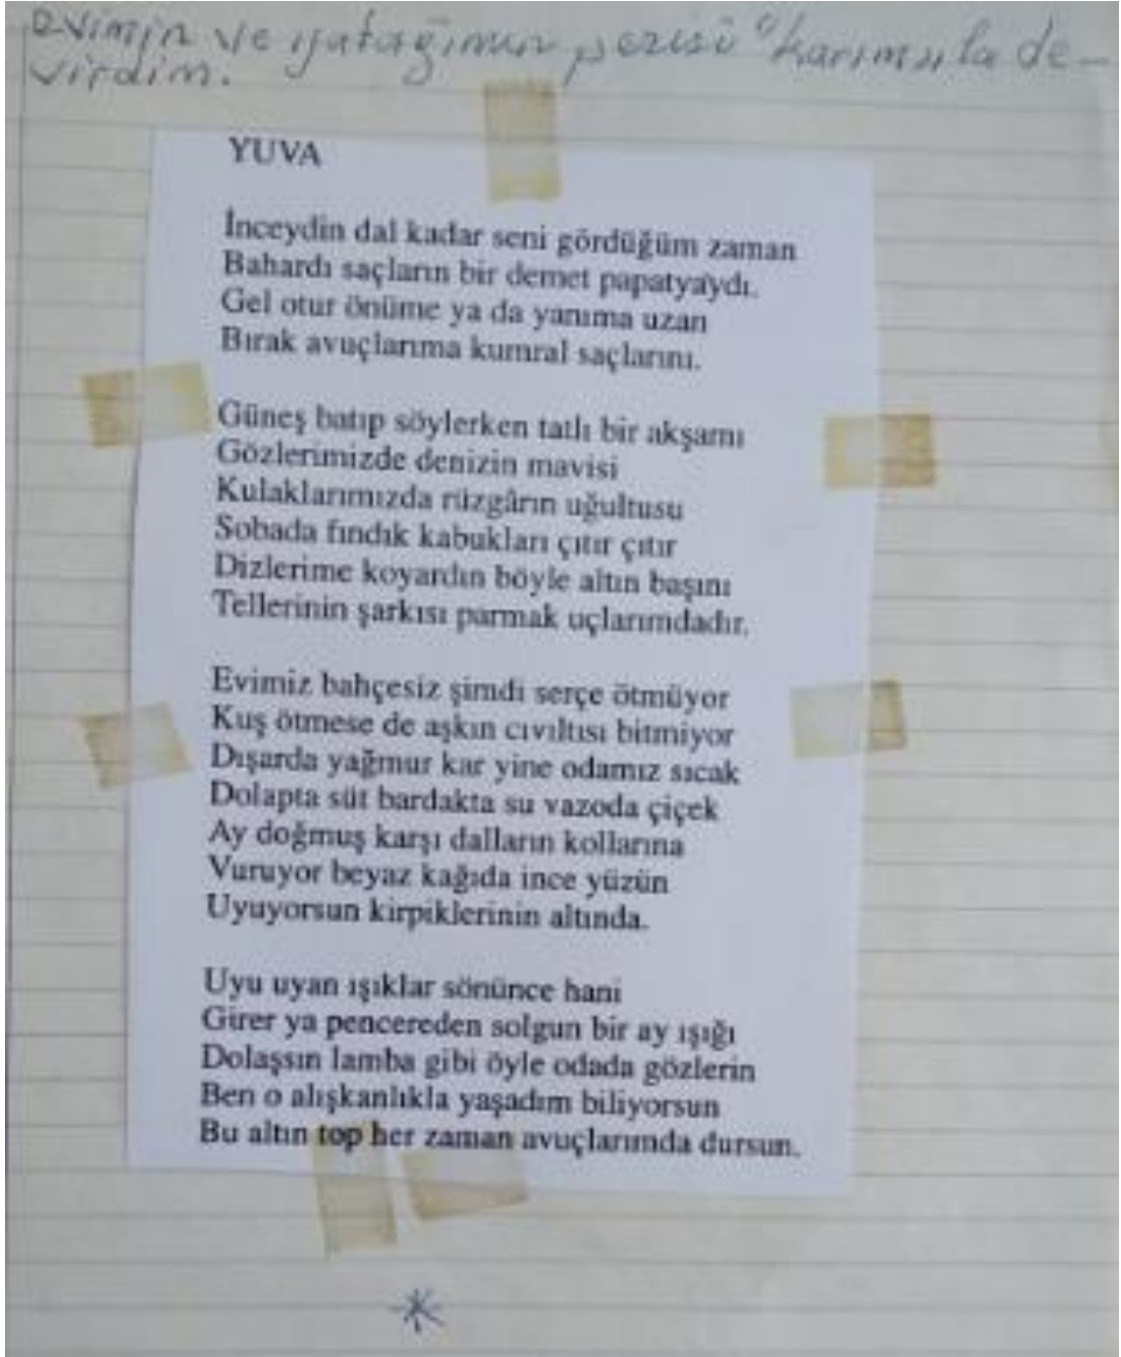 evimin ve yatağımın perisi "karımsıla de-
virdim.
YUVA
İnceydin dal kadar seni gördüğüm zaman
Bahardı saçların bir demet papatyaydı.
Gel otur önüme ya da yanıma uzan
Bırak avuçlarıma kumral saçlarını.
Güneş batıp söylerken tatlı bir akşamı
Gözlerimizde denizin mavisi
Kulaklarımızda rüzgârın uğultusu
Sobada fındık kabukları çıtır çıtır
Dizlerime koyardın böyle altın başını
Tellerinin şarkısı parmak uçlarımdadır.
Evimiz bahçesiz şimdi serçe ötmüyor
Kuş ötmese de aşkın cıvıltısı bitmiyor
Dışarda yağmur kar yine odamız sıcak
Dolapta süt bardakta su vazoda çiçek
Ay doğmuş karşı dalların kollarına
Vuruyor beyaz kağıda ince yüzün
Uyuyorsun kirpiklerinin altında.
Uyu uyan ışıklar sönünce hani
Girer ya pencereden solgun bir ay ışığı
Dolaşsın lamba gibi öyle odada gözlerin
Ben o alışkanlıkla yaşadım biliyorsun
Bu altın top her zaman avuçlarımda dursun.